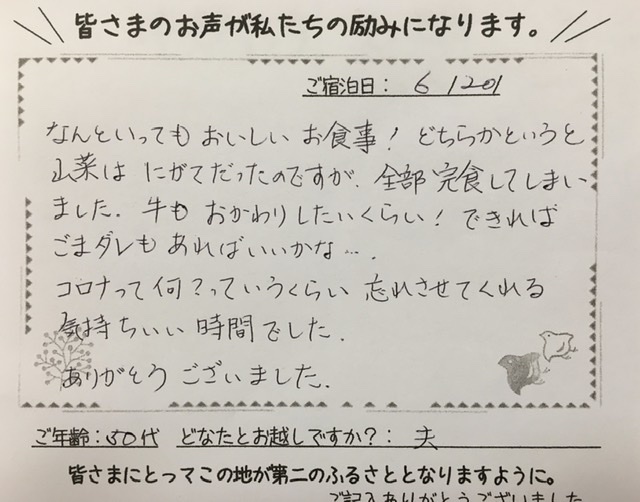 皆さまのお声が私たちの励みになります。
ご宿泊日: 6/20
なんといっても おいしい お食事! どちらかというと
山菜は にがてだったのですが、全部 完食してしまい
ました. 牛も おかわりしたいくらい! できれば
ごまダレも あればいいかな….
コロナって 何?っていうくらい 忘れさせてくれる
気持ちいい 時間でした.
ありがとう ございました.
ご年齢: 50代 どなたとお越しですか?: 夫
皆さまにとってこの地が第二のふるさととなりますように。
ご記入ありがとうございました